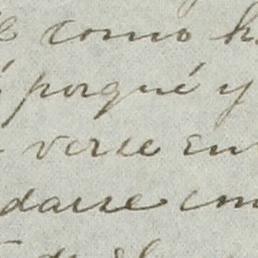 como h
porqué y
verse en
darse con